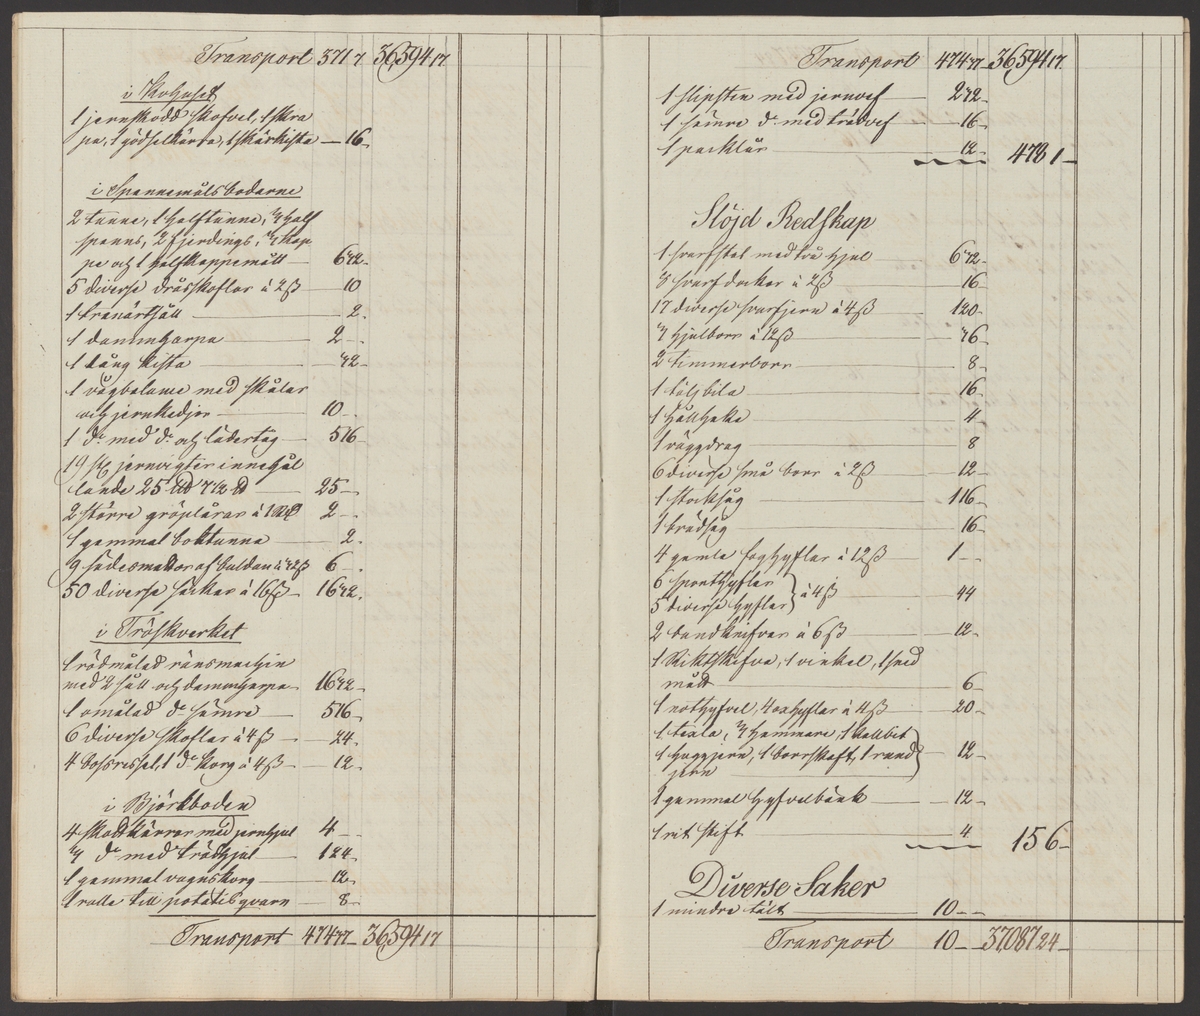 Transport 371 7. 36,594 17.
i Kohuset
1 jernskodd skofvel, 1 skra
pa, 1 gödselkärra, 1 skärkista — 16 —
i Spannemålsbodarne
2 tunne, 1 halftunne, 3 half
spanns, 2 fjerdings, 3 kap
pe och 1 halfkappemått — 6 32 —
5 diverse dråsskoflar à 2 ß — 10
1 — 2.
1 dammharpa — 2 — .
1 lång kista — 32 —
1 vågbalance med skålar
och jernkedjor — 10 — .
1 do med do och lädertåg — 5 16 —
19 st jernvigter innehål
lande 25 LU 7 1/2 U — 25 — .
2 större gröplårar à 1 Rd — 2 — .
1 gammal boktunna — 2.
9 sädesmattor af buldan à 32 ß 6 — .
50 diverse säckar à 16 ß — 16 32.
i Tröskverket
1 rödmålad rensmachin
med 2 såll och dammharpa — 16 32 —
1 omålad do sämre — 5 16 —
6 diverse skoflar à 4 ß — 24 —
4 bossressel, 1 do korg à 4 ß — 12 —
i Björkboden
4 skottkärror med jernhjul 4 — —
3 do med trädhjul — 1 24 —
1 gammal vagnskorg — 12 —
1 rulle till potatisqvarn — 8 —
Transport 474 37 — 36,594 17
Transport 474 37 — 36,594 17.
1 slipsten med jernvef — 2 32 —
1 sämre do med trädvef — 16 —
1 packlår — 12 — 478 1 —
Slöjd Redskap
1 svarfstol med två hjul — 6 32 —
8 svarfdockor à 2 ß — 16 —
17 diverse svarfjern à 4 ß — 1 20 —
3 hjulborr à 12 ß — 36 —
2 timmerborr — 8 —
1 täljbila — 16 —
1 hållhake — 4
1 väggdrag — 8
6 diverse små borr à 2 ß — 12 —
1 stocksåg — 1 16 —
1 trädsåg — 16 —
4 gamla foghyflar à 12 ß — 1 — —
6 sponthyflar
5 diverse hyflar } à 4 ß — 44
2 bandknifvar à 6 ß — 12 —
1 Riktskifva, 1 vinkel, 1 sned
mått — 6 —
1 nothyfvel, 4 oxhyflar à 4 ß — 20 —
1 texla, 3 hammare, 1 kallbit
1 huggjern, 1 borrskaft, 1 rund
jern — 12 —
1 gammal hyfvelbänk — 12 —
1 rit stift — 4 15 6 —
Diverse Saker
1 mindre tält — 10 — —
Transport 10 — — 37,087 24 —